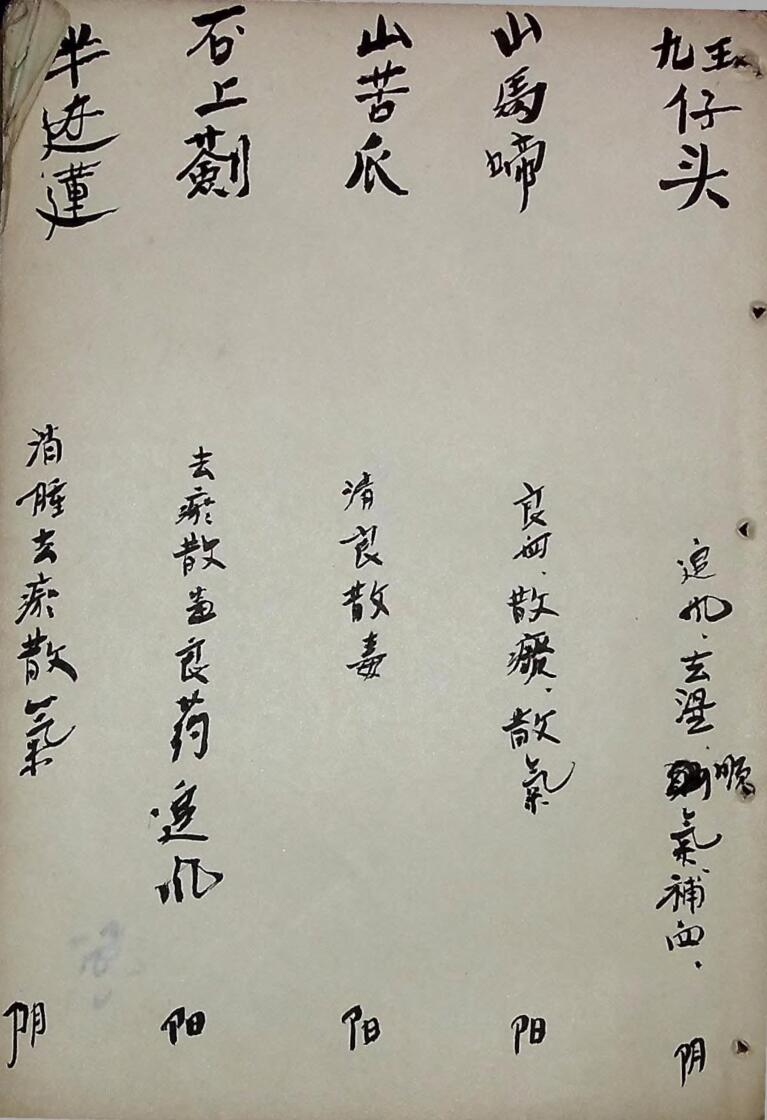 九王仔头
追风、去湿、顺氣、補血、
阴
山馬蹄
良血、散瘀、散氣
阳
山苦瓜
清良散毒
阳
石上劐
去瘀散血良药追风
阳
半边蓮
消腫去瘀散氣
阴